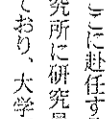 ここに赴任す
究所に研究員
ており、大学